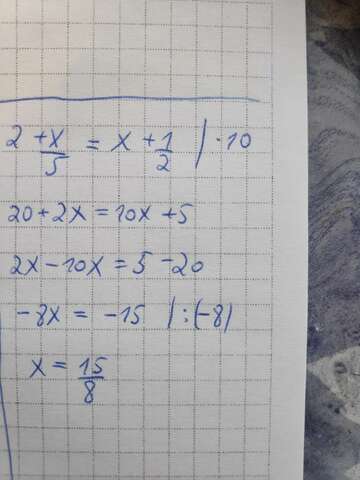 2 + x/5 = x + 1/2 | · 10
20 + 2x = 10x + 5
2x - 10x = 5 - 20
-8x = -15 | : (-8)
x = 15/8